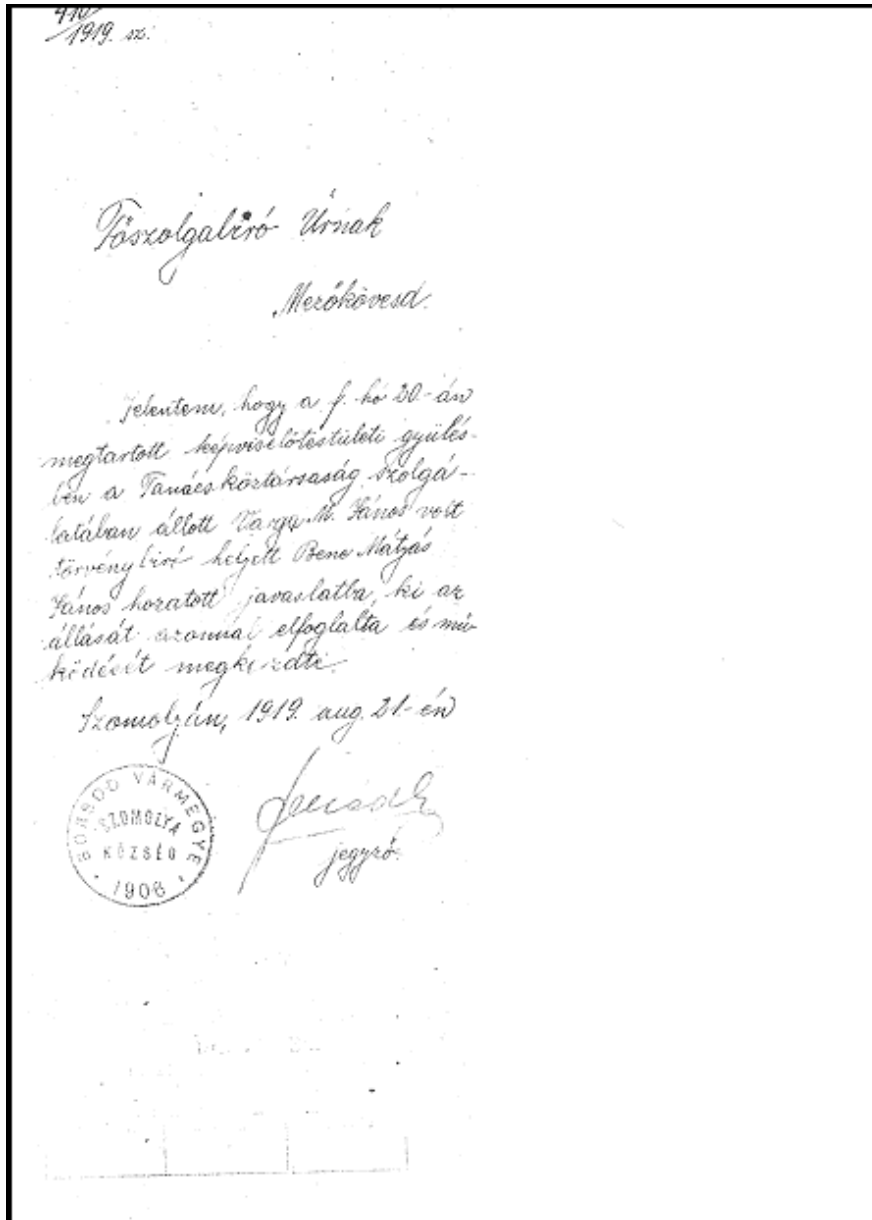 1919. sz.
Főszolgabíró Úrnak
Mezőkövesd.
Jelentem, hogy a f. hó 20-án
megtartott képviselőtestületi gyűlés-
ben a Tanácsköztársaság szolgá-
latában állott Varga M. János volt
törvénybíró helyett Bene Mátyás
János hozatott javaslatba, ki az
állását azonnal elfoglalta és mű-
ködését megkezdte.
Szomolyán, 1919. aug. 21-én
BORSOD VÁRMEGYE
SZOMOLYA
KÖZSÉG
1906
jegyző.